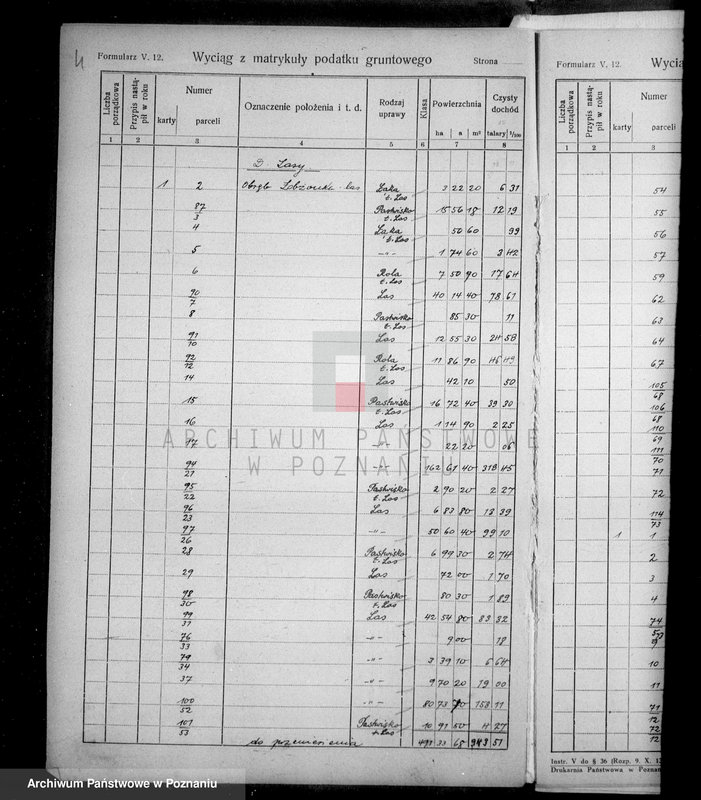 Formularz V. 12. Wyciąg z matrykuły podatku gruntowego Strona
Liczba porządkowa Przypis nastąpił w roku Numer karty parceli Oznaczenie położenia i t. d. Rodzaj uprawy Klasa Powierzchnia ha a m² Czysty dochód talary 1/100
1 2 3 4 5 6 7 8
D. Lasy
1 2 Obręb las Łąka t. Las 3 22 20 6 31
87/3 Pastwisko t. Las 15 56 18 12 19
4 Łąka t. Las 50 60 99
5 -"- 1 74 60 3 42
6 Rola t. Las 7 50 90 17 64
90/7 Las 40 14 40 78 61
8 Pastwisko t. Las 85 30 11
91/10 Las 12 55 30 24 58
92/12 Rola t. Las 11 86 90 45 49
14 Las 42 10 50
15 Pastwisko t. Las 16 72 40 39 30
16 Las 1 14 90 2 25
17 -"- 22 20 06
94/21 -"- 162 61 40 318 45
95/22 Pastwisko t. Las 2 90 20 2 27
96/23 Las 6 83 80 13 39
97/26 -"- 50 60 40 99 10
28 Pastwisko t. Las 6 99 30 2 74
29 Las 72 00 1 70
98/30 Pastwisko t. Las 80 30 1 89
99/31 Las 42 54 80 83 32
76/33 -"- 9 00 18
79/34 -"- 3 39 10 6 64
37 -"- 9 70 20 19 00
100/52 -"- 80 73 70 158 11
101/53 Pastwisko t. Las 10 91 50 4 27
do przeniesienia 491 33 68 943 51
Formularz V. 12. Wycią
Liczba porządkowa Przypis nastąpił w roku Numer karty parceli
1 2 3
54
55
56
57
59
62
63
64
67
105/68
106/68
110/69
111/70
71
72
114/73
1 1
2
3
4
74
10
11
71/12
72/12
Instr. V do § 36 (Rozp. 9. X. 1
Drukarnia Państwowa w Pozna
ARCHIWUM PAŃSTWOWE
W POZNANIU
Archiwum Państwowe w Poznaniu